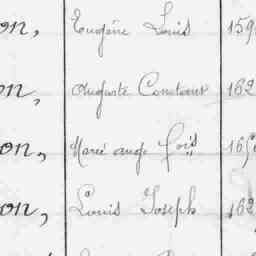 on, Eugène Louis 159
on, Auguste Constant 162
on, Marie ange fois 165
on, Louis Joseph 162